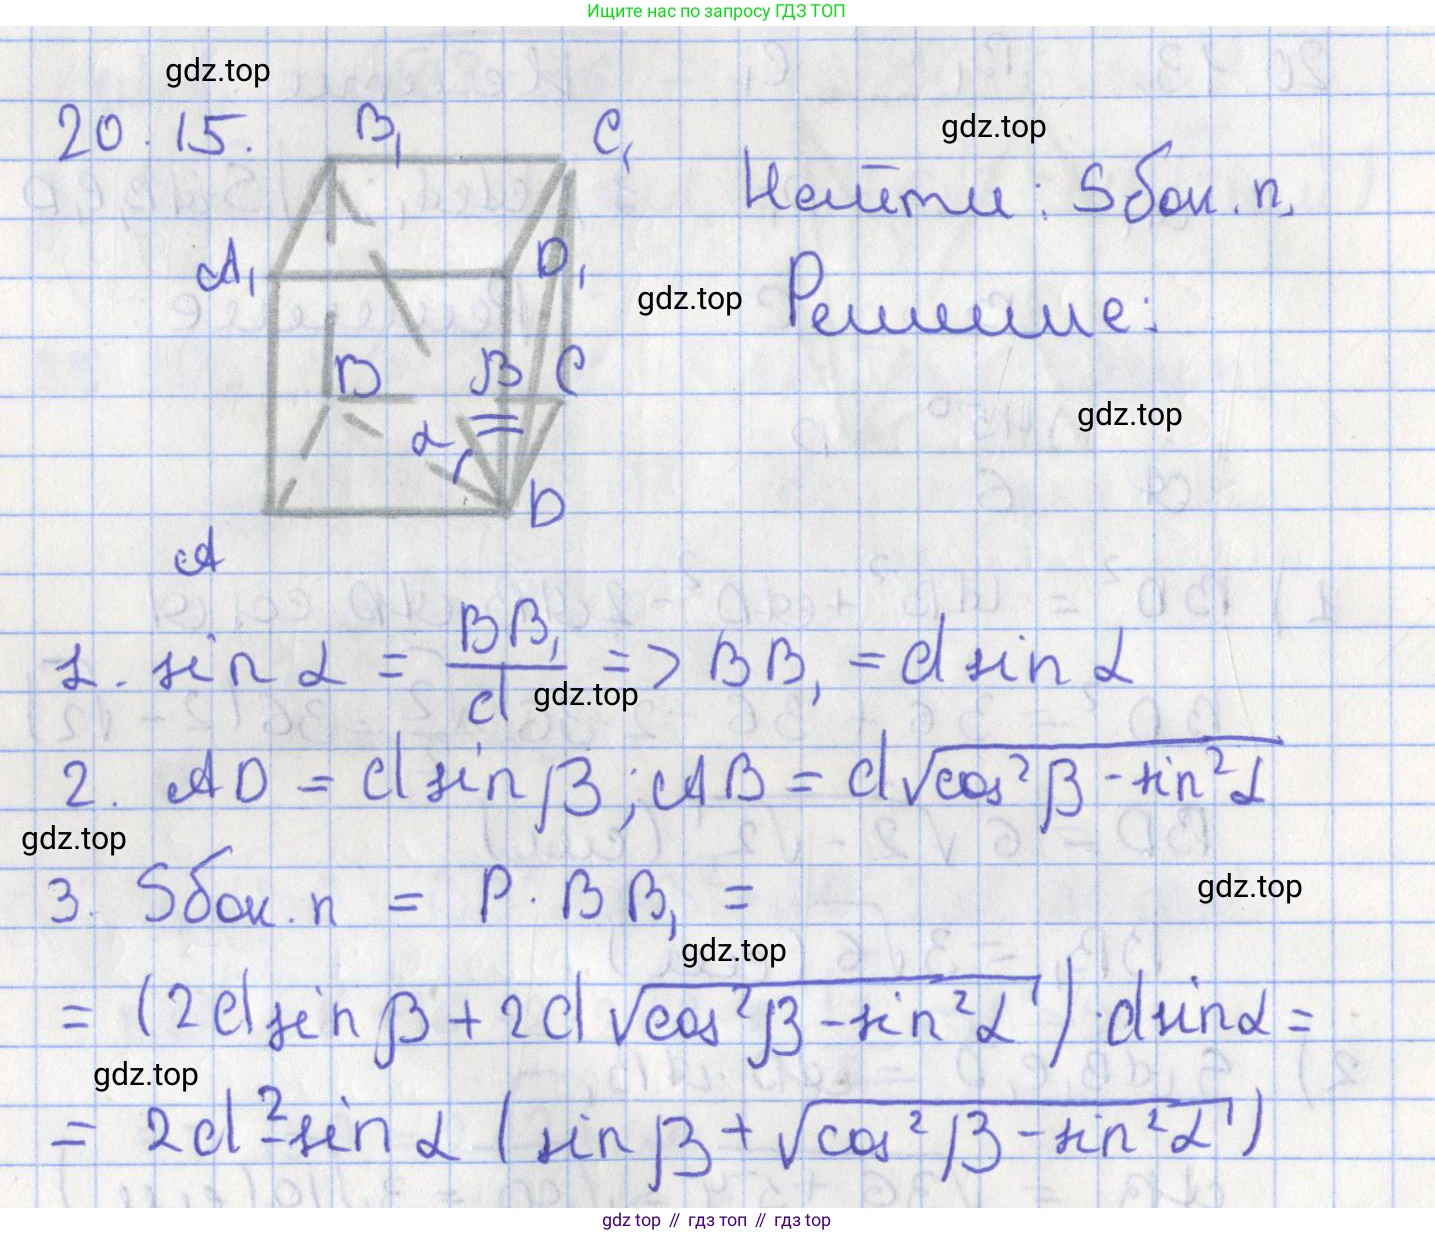 Ищите нас по запросу ГДЗ ТОП
gdz.top
20.15.
B₁
C₁
gdz.top
Найти: Sбок.п.
A₁
D₁
gdz.top
Решение:
B
β
C
gdz.top
α
D
A
1. sin α = BB₁/d => BB₁ = d sin α
gdz.top
2. AD = d sin β; AB = d√(cos²β - sin²α)
gdz.top
3. Sбок.п = P · BB₁ =
gdz.top
gdz.top
= (2d sin β + 2d √(cos²β - sin²α)) · d sin α =
gdz.top
= 2d² sin α (sin β + √(cos²β - sin²α))
gdz top // гдз топ // gdz top